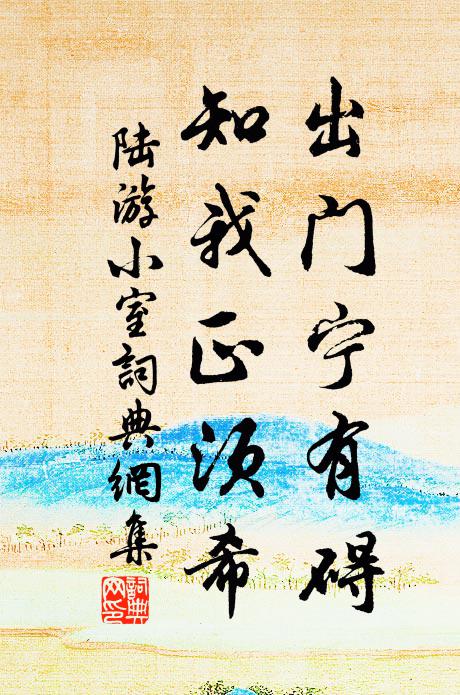 出门宁有碍
知我正须希
陆游小室詞典網集
詞典网印